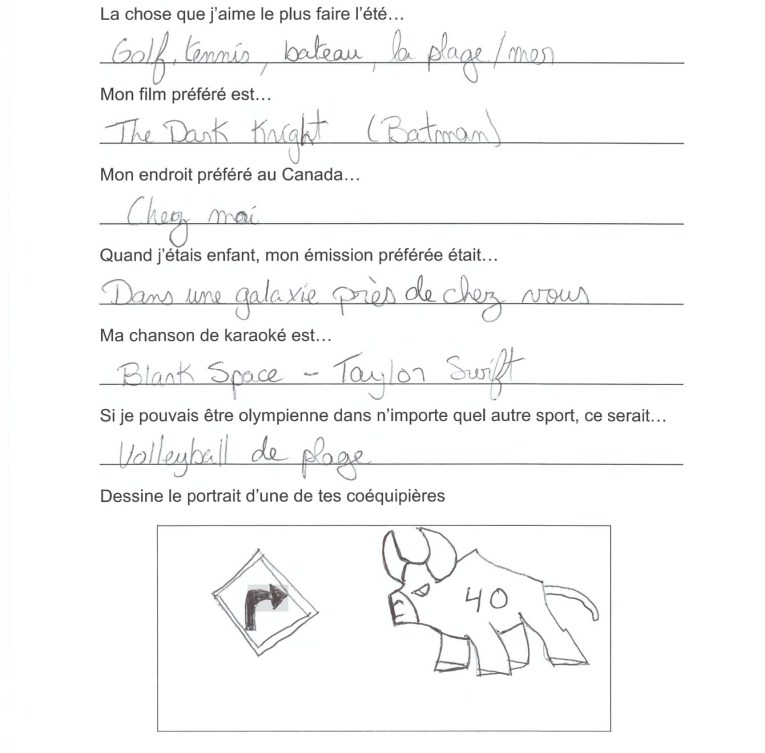 La chose que j'aime le plus faire l'été…
Golf, tennis, bateau, la plage/mer
Mon film préféré est…
The Dark Knight (Batman)
Mon endroit préféré au Canada…
Chez moi
Quand j'étais enfant, mon émission préférée était…
Dans une galaxie près de chez vous
Ma chanson de karaoké est…
Blank Space - Taylor Swift
Si je pouvais être olympienne dans n'importe quel autre sport, ce serait…
Volleyball de plage
Dessine le portrait d'une de tes coéquipières
40